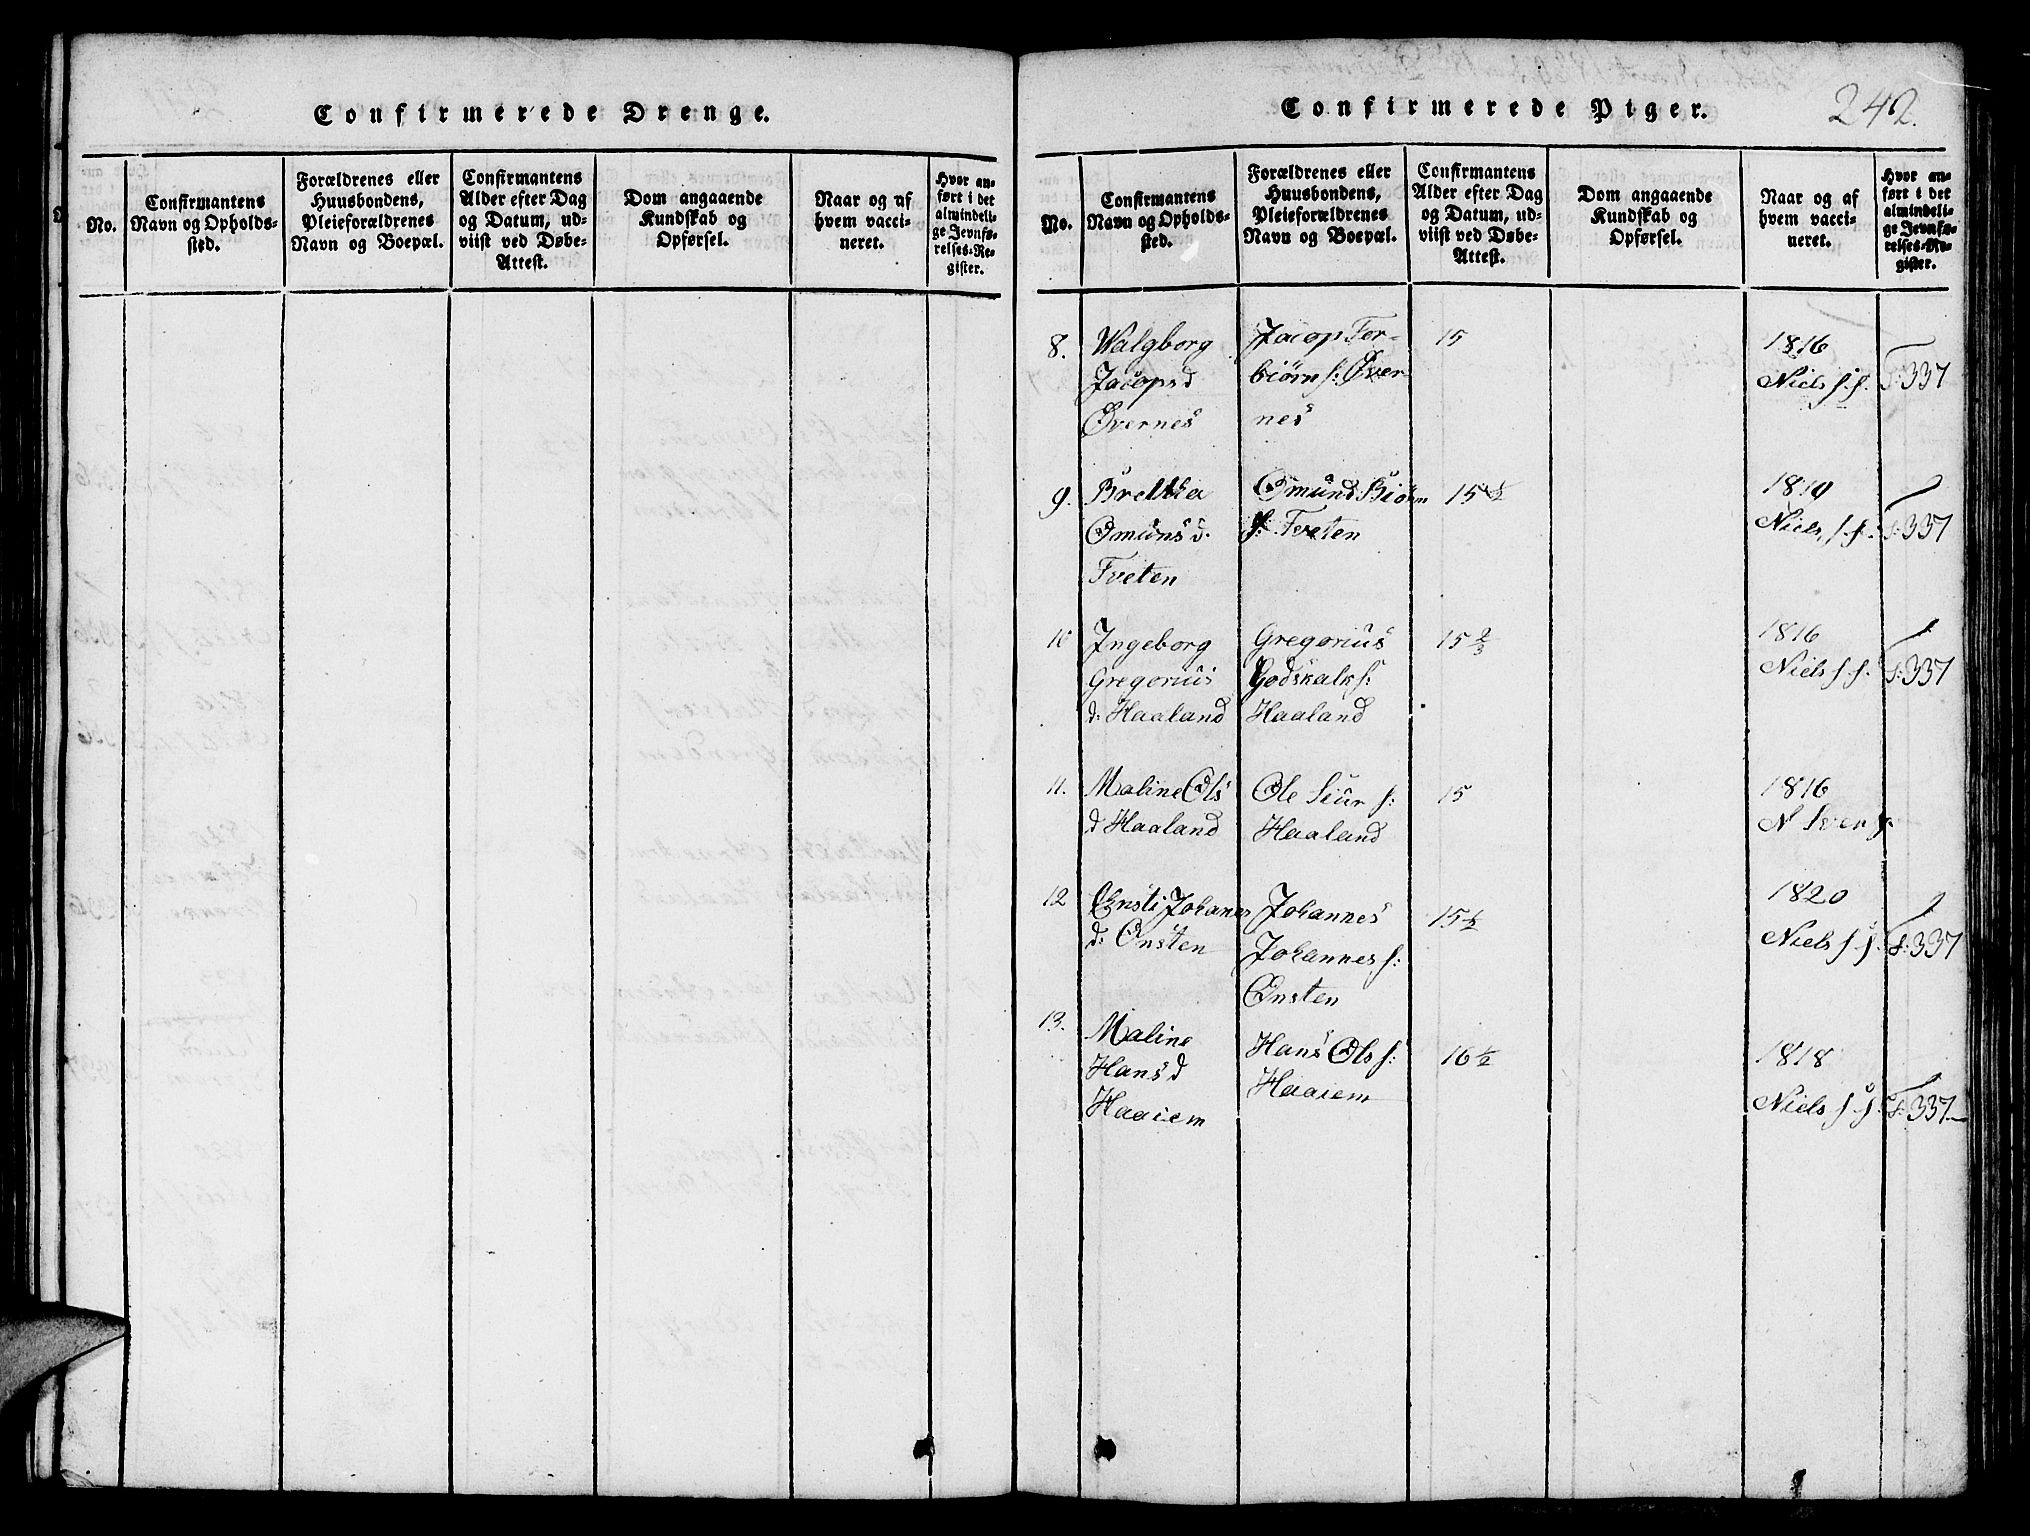 Confirmerede Drenge.
No.
Confirmantens
Navn og Opholds-
sted.
Forældrenes eller
Huusbondens,
Pleieforældrenes
Navn og Boepæl.
Confirmantens
Alder efter Dag
og Datum, ud-
viist ved Døbe-
Attest.
Dom angaaende
Kundskab og
Opførsel.
Naar og af
hvem vacci-
neret.
Hvor an-
ført i det
almindeli-
ge Jevnfø-
relses-Re-
gister.
Confirmerede Piger.
242.
No.
Confirmantens
Navn og Opholds-
sted.
Forældrenes eller
Huusbondens,
Pleieforældrenes
Navn og Boepæl.
Confirmantens
Alder efter Dag
og Datum, ud-
viist ved Døbe-
Attest.
Dom angaaende
Kundskab og
Opførsel.
Naar og af
hvem vacci-
neret.
Hvor an-
ført i det
almindeli-
ge Jevnfø-
relses-Re-
gister.
8.
Walgborg
Jacopsd
Øvernes
Jacop Tor-
biørn s: Øver-
nes
15
1816
Niels s. s.
S: 337
9.
Bretha
Omunsd.
Tveten
Omund Biørn
s: Tveten
15 1/2
1810
Niels s. s.
S: 337
10
Ingeborg
Gregorius
d: Haaland
Gregorius
Godskalk s:
Haaland
15 2/3
1816
Niels s. s.
S: 337
11.
Maline Ols
d Haaland
Ole Siur s:
Haaland
15
1816
N Iver s.
12
Johanes
d: Onsten
Johannes
Johannes s:
Onsten
15 1/2
1820
Niels s. s.
S: 337
13.
Maline
Hansd
Haaiem
Hans Ols s:
Haaiem
16 1/2
1818
Niels s. s.
S: 337